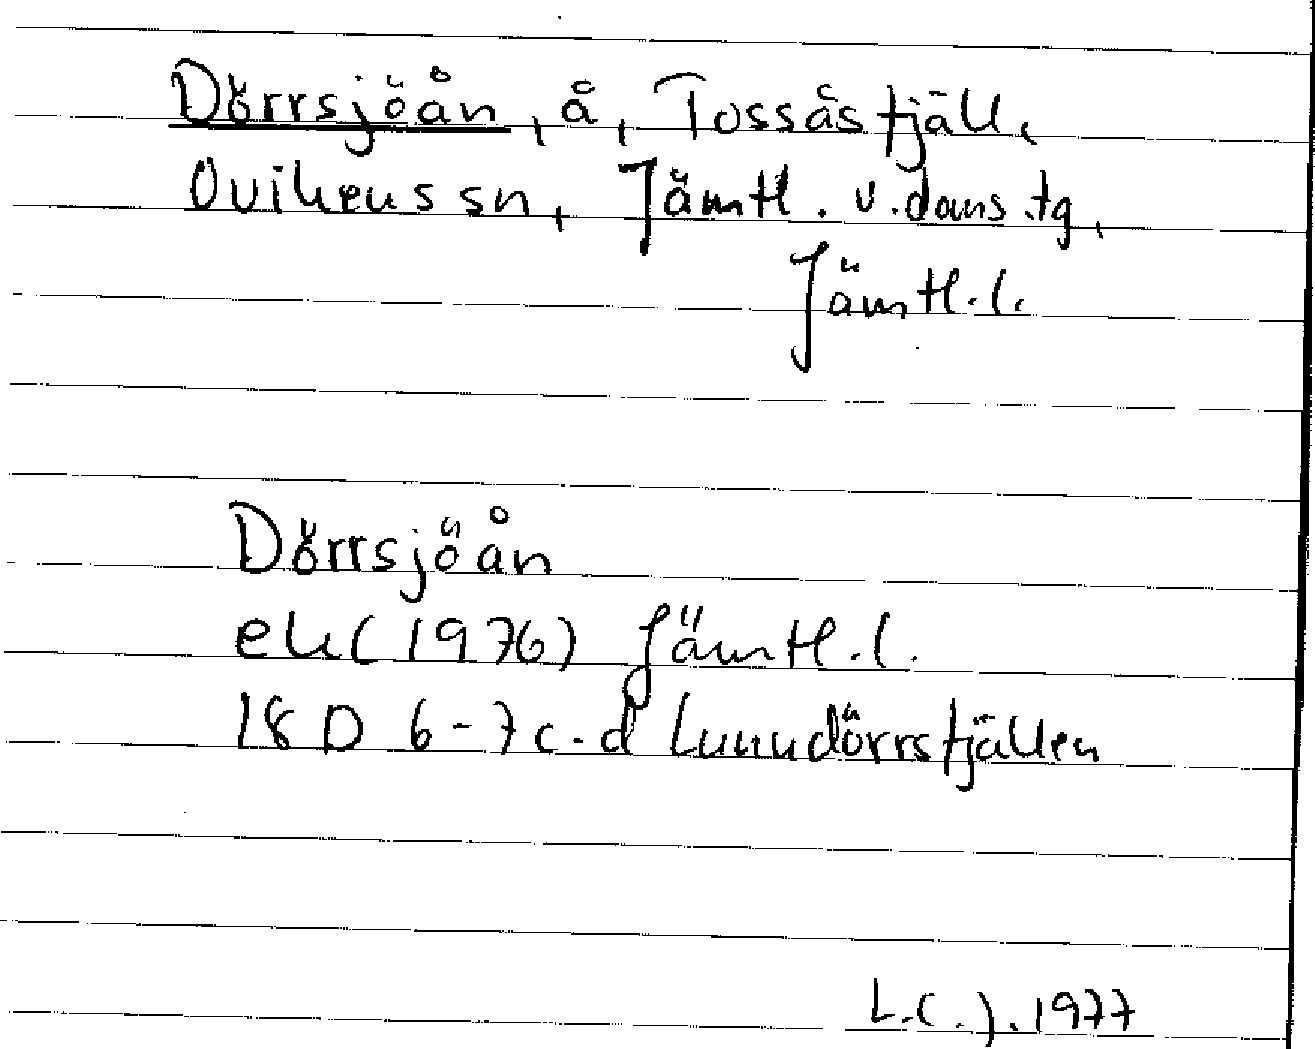 Dörrsjöån, å, Tossåsfjäll,
Ovikens sn, Jämtl. v. doms. tg,
Jämtl. l.
Dörrsjöån
ek (1976) Jämtl. l.
18 D 6-7 c-d Lunndörrsfjällen
L.C.J. 1977